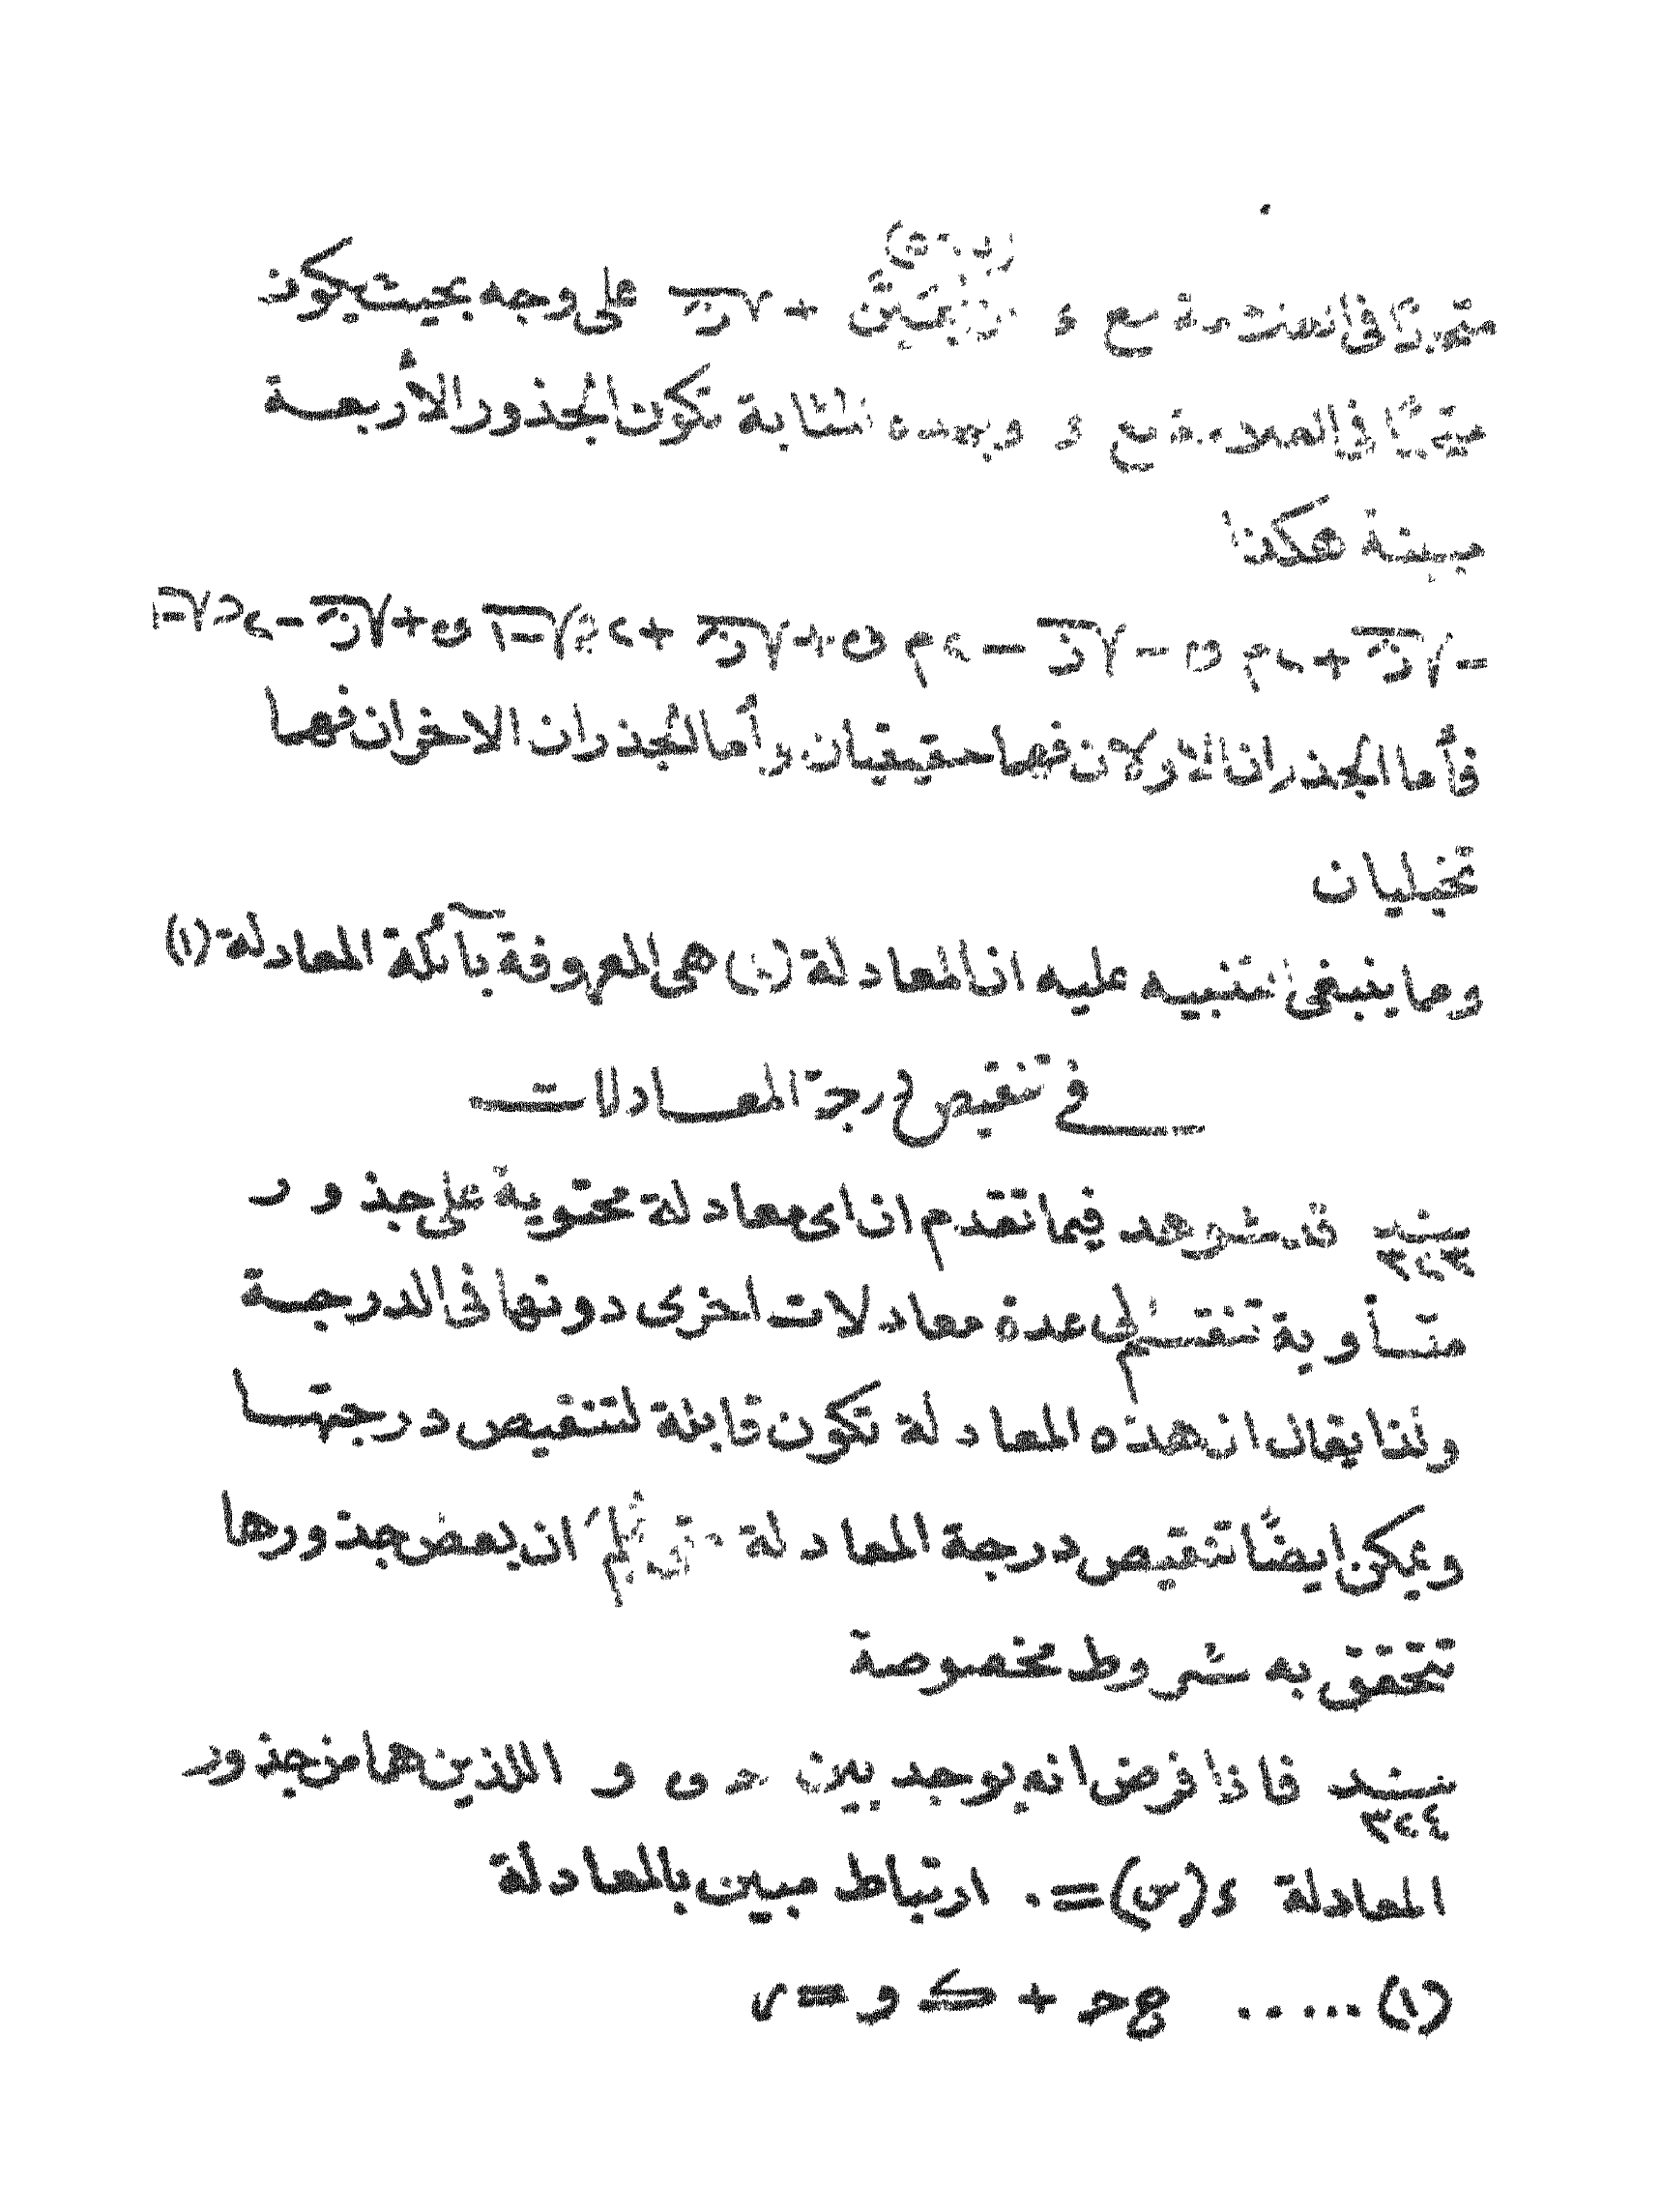 متحدًا في العلامة مع ء + √ز على وجه بحيث يكون
متحدًا في العلامة مع و وبهذه المثابة تكون الجذور الأربعة
مبينة هكذا
فأما الجذران الاولان فهما حقيقيان وأما الجذران الاخران فهما
تخيليان
ومما ينبغي التنبيه عليه ان المعادلة هى المعروفة بآكة المعادلة (١)
في تنقيص درجة المعادلات
بند ٣٢٣ قد شوهد فيما تقدم ان اى معادلة محتوية على جذور
متساوية تنقسم الى عدة معادلات اخرى دونها فى الدرجة
ولذا يقال ان هذه المعادلة تكون قابلة لتنقيص درجتها
ويمكن ايضًا تنقيص درجة المعادلة متى علم ان بعض جذورها
تتحقق به شروط مخصوصة
بند ٣٢٤ فاذا فرض انه يوجد بين حـ و و اللذين هما من جذور
المعادلة ء(س)=٠ ارتباط مبين بالمعادلة
(١) ..... ع حـ + ك و = م